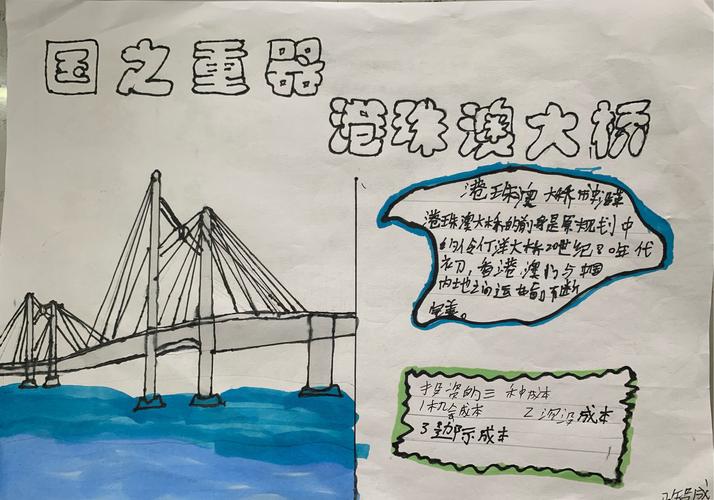 国之重器
港珠澳大桥
港珠澳大桥的
港珠澳大桥的前身是原规划中
的伶仃洋大桥20世纪80年代
初，香港、澳门与中国
内地之间运不断
完善。
投资的三种成本
1机会成本 2沉没成本
3边际成本